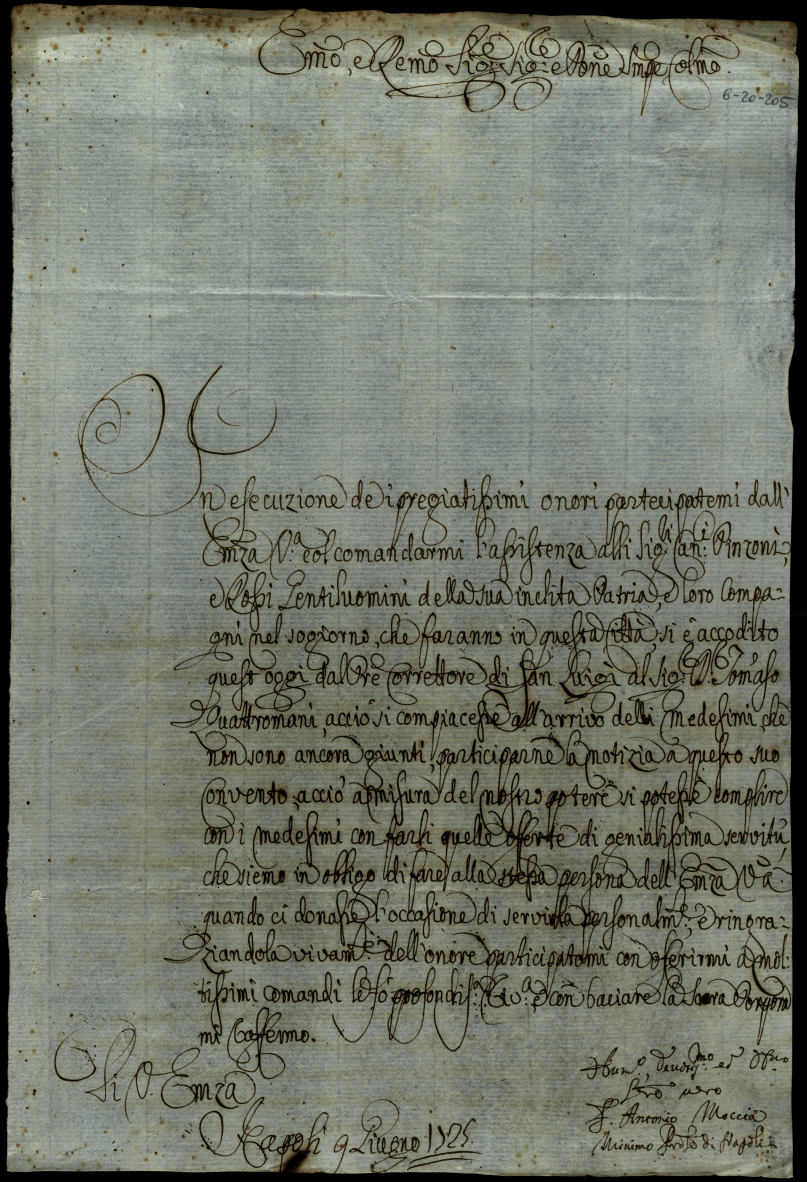 Emo, e Remo Sigre Sigre e Pñe Smpe Colmo.
6-20-205
In esecuzione de i pregiatissimi onori partecipatemi dall'
Emza Va. col comandarmi l'assistenza alli Sigri Cani. Pinzoni,
e Rossi Gentiluomini della sua inclita Patria, e loro Compa=
gni nel sogiorno, che faranno in questa Città, si è accodito
quest'oggi dal Pre Correttore di San Luigi al Sigre D. Tomaso
Quattromani, acciò si compiacesse all'arrivo delli medesimi, che
non sono ancora giunti, participarne la notizia a questo suo
Convento, acciò a misura del nostro potere si potesse complire
con i medesimi con farli quelle offerte di genialissima servitù,
che siemo in obbligo di fare alla stessa persona dell'Emza Va.
quando ci donasse l'occasione di servirla personalmte, e ringra=
ziandola vivamte dell'onore participatomi con oferirmi a mol=
tissimi comandi le fò profondisa. Riva. e con baciare la Sacra Porpora
mi raffermo.
Di V. Emza
Napoli 9 Giugno 1725.
Humo. Devotmo ed
Servo vero
F. Antonio Moccia
Minimo Prole di Napoli